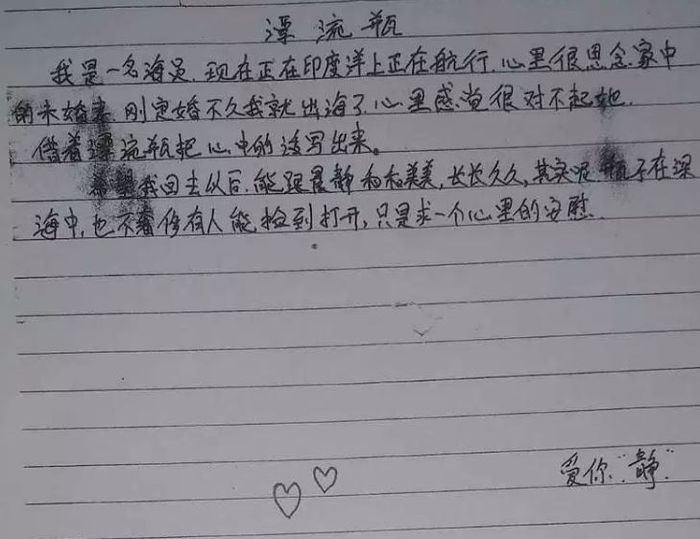 漂流瓶
我是一名海员.现在正在印度洋上正在航行.心里很思念家中
的未婚妻.刚定婚不久我就出海了.心里感觉很对不起她.
借着漂流瓶把心中的话写出来。
希望我回去以后.能跟晨静和和美美,长长久久,其实呢瓶子在深
海中,也不奢侈有人能捡到打开,只是求一个心里的安慰.
爱你"静"